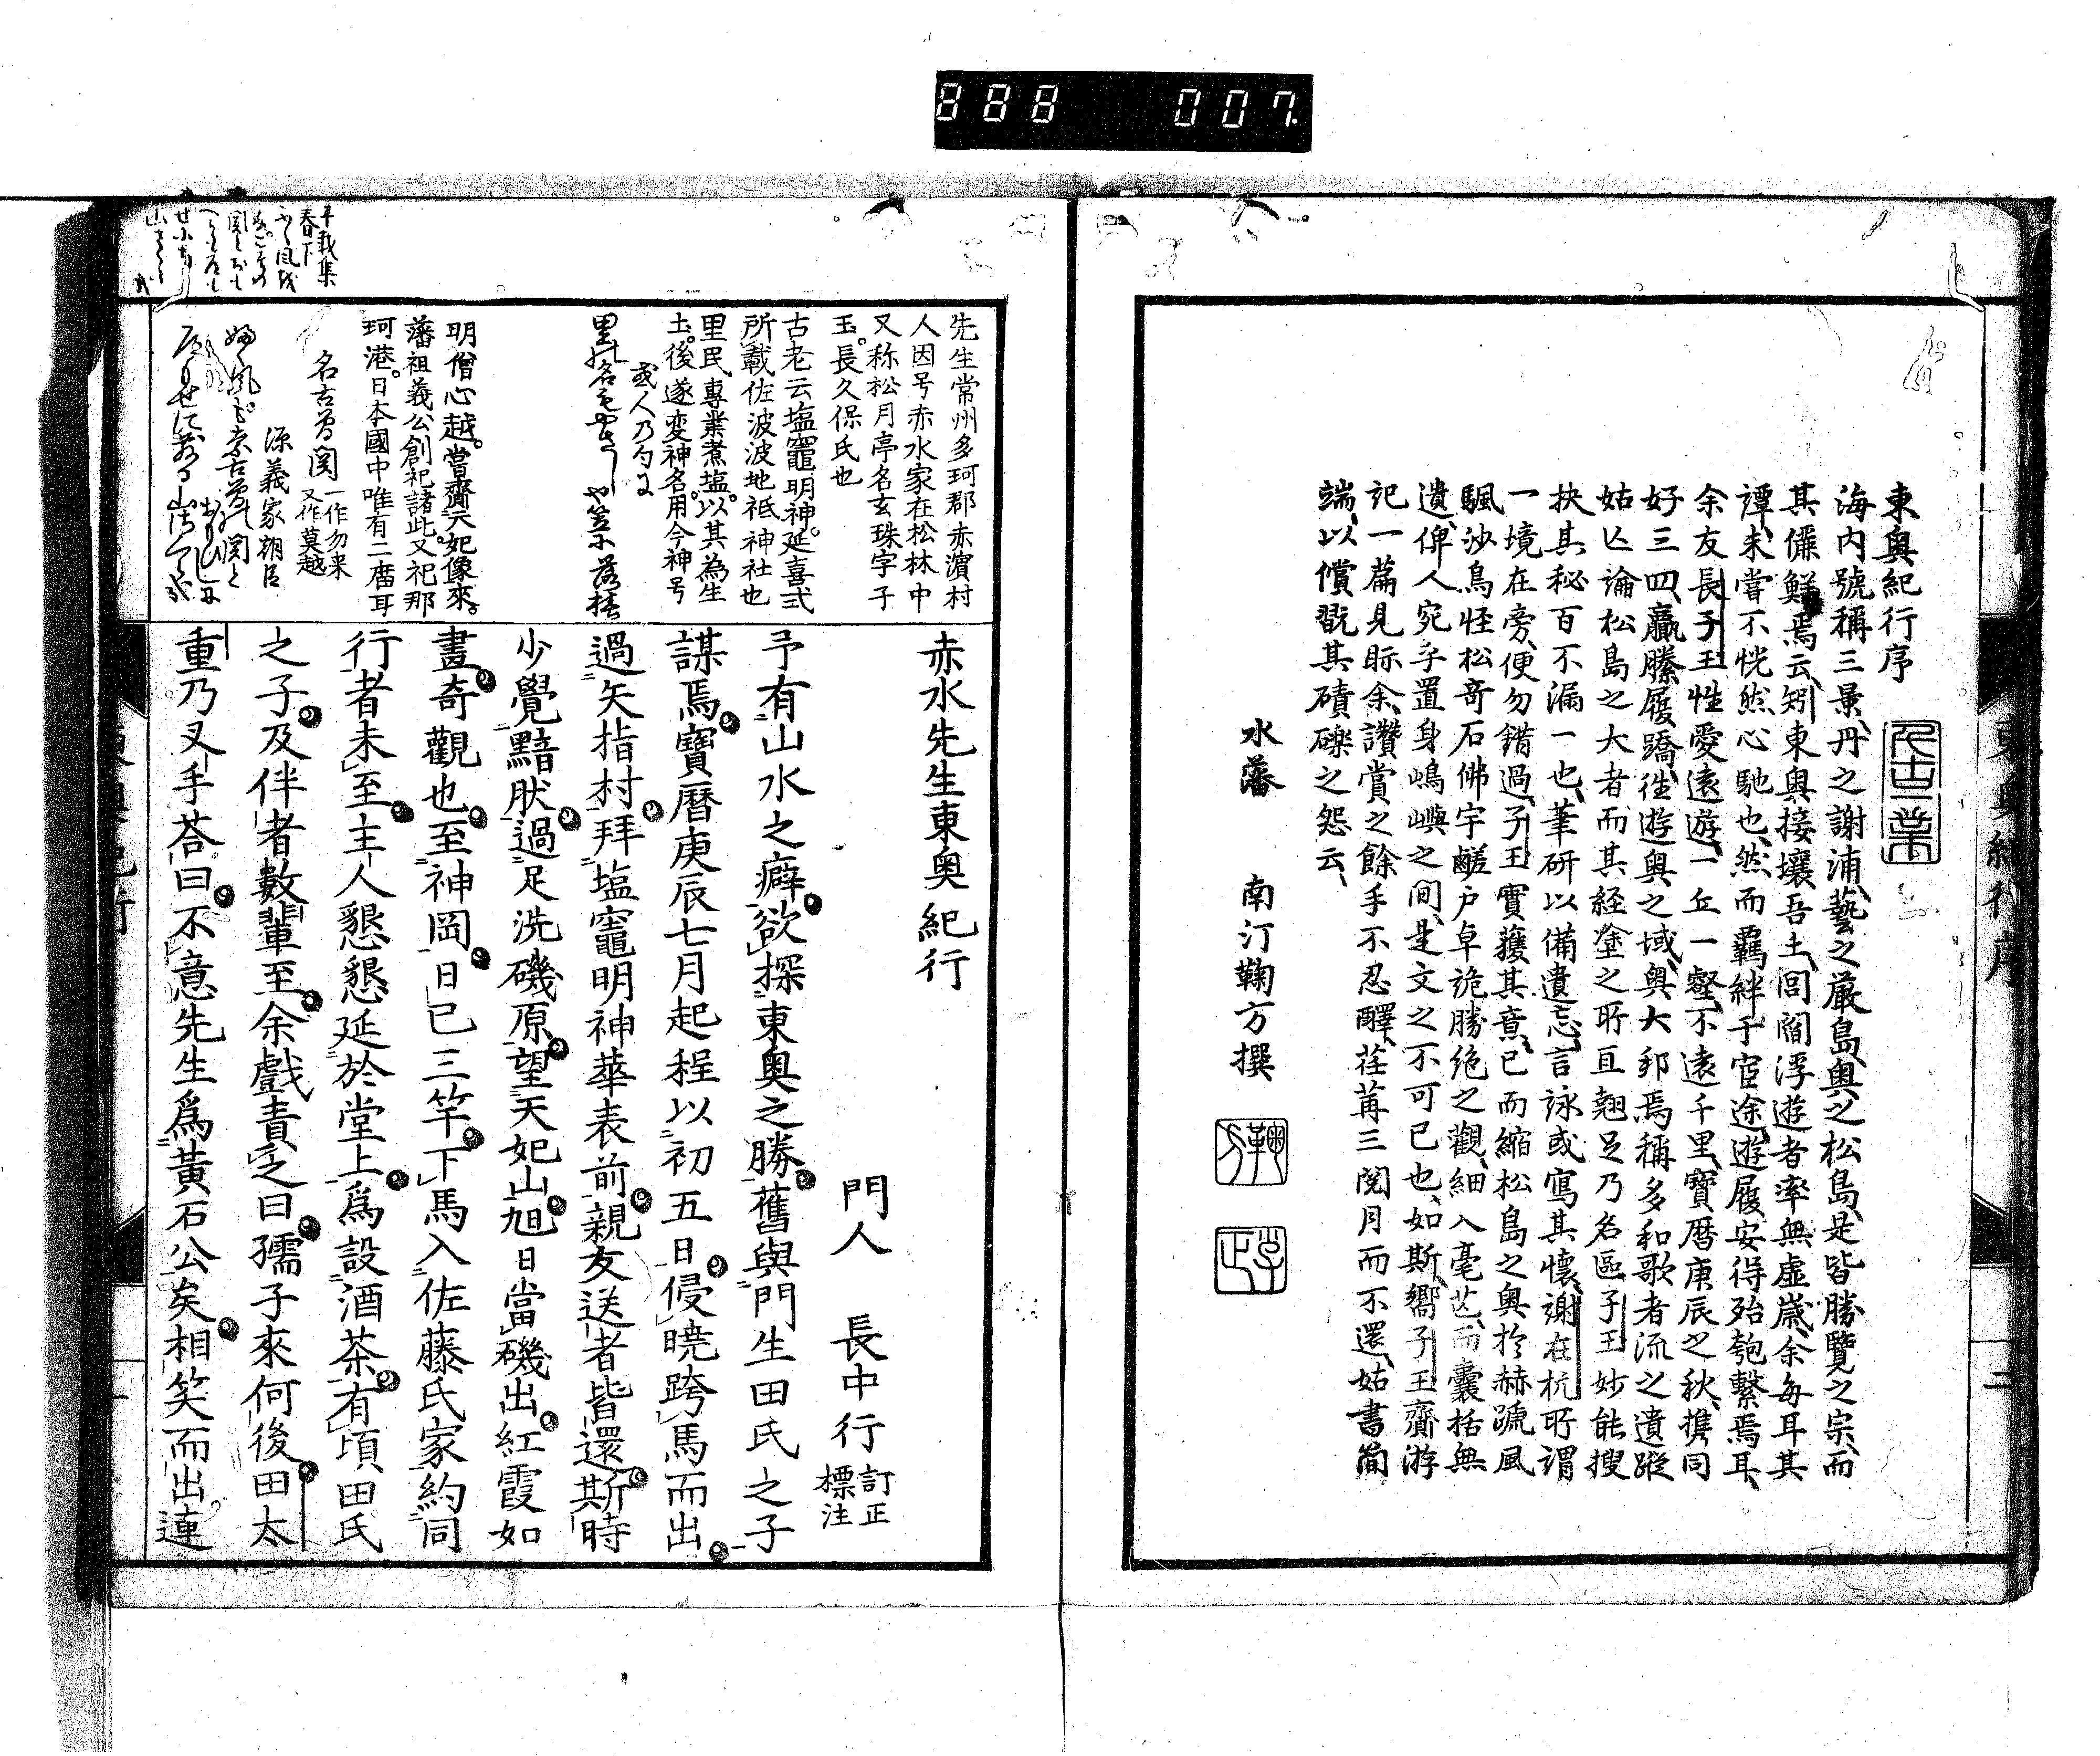 888 007.
東奧紀行序
海内號稱三景、丹之謝浦、藝之厳島、奧之松島、是皆勝覽之宗、而
其儷鮮焉云、矧東奧接壤吾土、閭閻浮遊者率無虛歲、余每耳其
譚、未嘗不恍然心馳也、然而羈絆于宦途、遊履安得殆匏繫焉耳、
余友長子玉性愛遠遊、一丘一壑、不遠千里、寶曆庚辰之秋、携同
好三四、贏縢履蹻、徃遊奧之域、奧大邦焉稱多和歌者流之遺蹤
姑亾論松島之大者而其経塗之所亘翹足乃名區、子玉妙能搜
抉其秘百不漏一也、筆研以備遺忘、言詠或寫其懷、謝在杭所謂
一境在旁、便勿錯過、子玉實獲其意、已而縮松島之奧於赫蹏風
颿沙鳥怪松奇石佛宇鹺戶卓詭勝絶之觀、細入毫芒、而囊括無
遺、俾人宛乎置身嶋嶼之間、是文之不可已也、如斯、嚮子玉齎游
記一篇見眎余、讚賞之餘手不忍釋、荏苒三閱月而不還、姑書簡
端、以償翫其磧礫之怨云、
水藩　南汀鞠方撰
東奧紀行序
二
赤水先生東奧紀行
門人　長中行　訂正標注
予有山水之癖欲探東奧之勝舊與門生田氏之子
謀焉寶曆庚辰七月起程以初五日侵曉跨馬而出
過矢指村拜塩竈明神華表前親友送者皆還斯時
少覺黯然過足洗磯原望天妃山旭日當磯出紅霞如
畫奇觀也至神岡日已三竿下馬入佐藤氏家約同
行者未至主人懇懇延於堂上爲設酒茶有頃田氏
之子及伴者數輩至余戲責之曰孺子來何後田太
重乃叉手荅曰不意先生爲黃石公矣相笑而出連
先生常州多珂郡赤濵村
人因号赤水家在松林中
又称松月亭名玄珠字子
玉。長久保氏也
古老云塩竈明神。延喜式
所載佐波波地祗神社也
里民專業煮塩。以其為生
土。後遂变神名。用今神号
明僧心越。嘗齎天妃像來。
藩祖義公創祀諸此。又祀那
珂港。日本國中唯有二廟耳
名古曽関　一作勿来又作莫越
源義家朝臣
千載集
春下